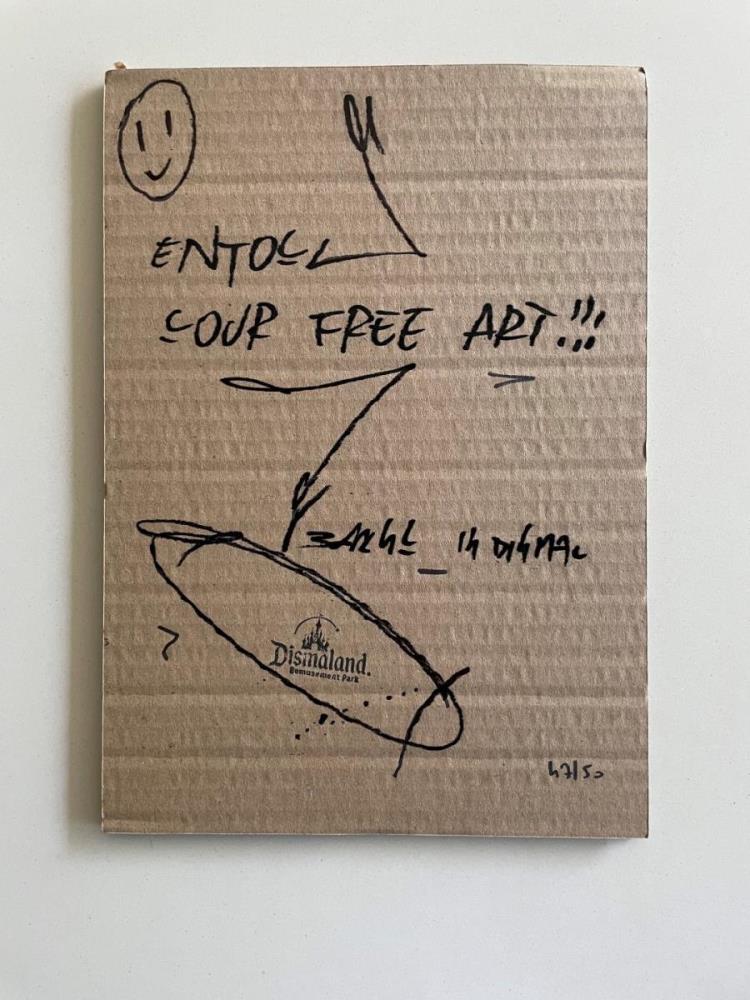 ENJOY
YOUR FREE ART!!!
IN DISMAL
Dismaland.
Bemusement Park
47/50